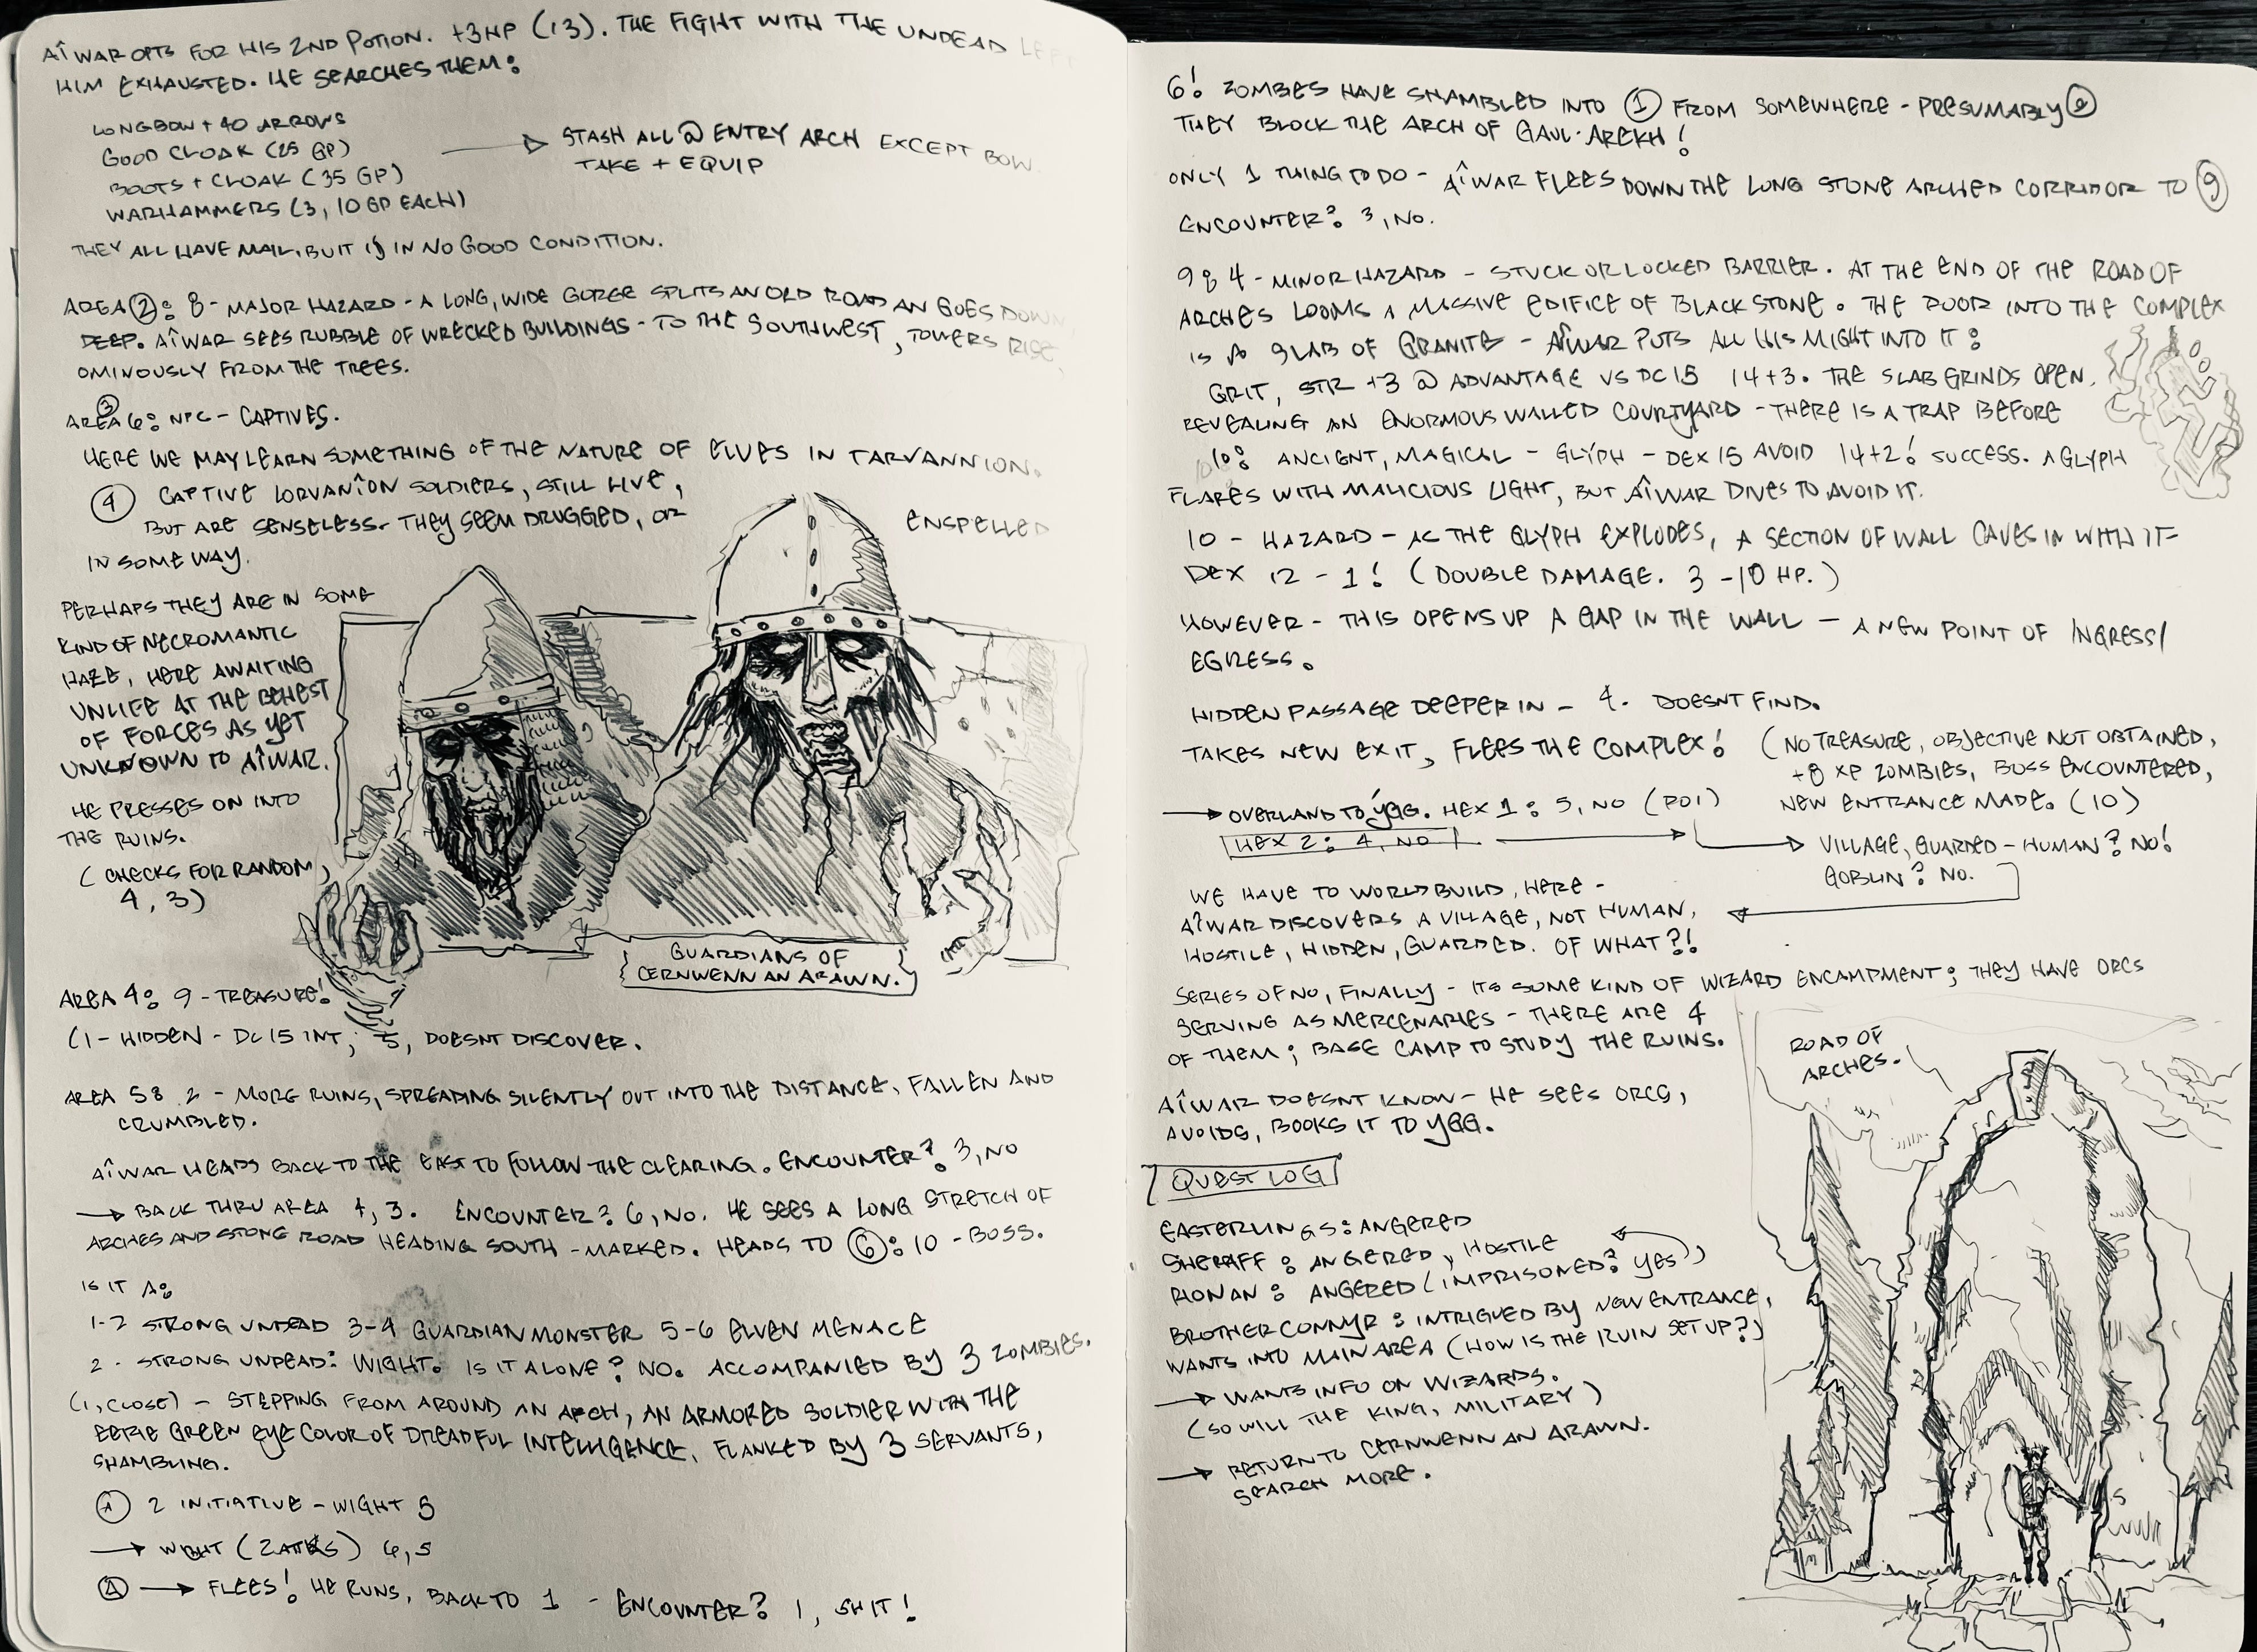 AÎWAR OPTS FOR HIS 2ND POTION. +3HP (13). THE FIGHT WITH THE UNDEAD LEFT
HIM EXHAUSTED. HE SEARCHES THEM:
LONGBOW + 40 ARROWS
GOOD CLOAK (25 GP)
BOOTS + CLOAK (35 GP)
WARHAMMERS (3, 10 GP EACH)
STASH ALL @ ENTRY ARCH EXCEPT BOW.
TAKE + EQUIP
THEY ALL HAVE MAIL, BUT IS IN NO GOOD CONDITION.
AREA 2: 8 - MAJOR HAZARD - A LONG, WIDE GORGE SPLITS AN OLD ROAD AN GOES DOWN
DEEP. AÎWAR SEES RUBBLE OF WRECKED BUILDINGS - TO THE SOUTHWEST, TOWERS RISE
OMINOUSLY FROM THE TREES.
3
AREA 6: NPC - CAPTIVES.
HERE WE MAY LEARN SOMETHING OF THE NATURE OF ELVES IN TARVANNION.
4 CAPTIVE LORVANÎON SOLDIERS, STILL LIVE,
BUT ARE SENSELESS. THEY SEEM DRUGGED, OR ENSPELLED
IN SOME WAY.
PERHAPS THEY ARE IN SOME
KIND OF NECROMANTIC
HAZE, HERE AWAITING
UNLIFE AT THE BEHEST
OF FORCES AS YET
UNKNOWN TO AÎWAR.
HE PRESSES ON INTO
THE RUINS.
(CHECKS FOR RANDOM,
4, 3)
GUARDIANS OF
CERNWENN AN ARAWN.
AREA 4: 9 - TREASURE!
(1 - HIDDEN - DC 15 INT; 5, DOESNT DISCOVER.
AREA 5: 2 - MORE RUINS, SPREADING SILENTLY OUT INTO THE DISTANCE, FALLEN AND
CRUMBLED.
AÎWAR HEADS BACK TO THE EAST TO FOLLOW THE CLEARING. ENCOUNTER? 3, NO
→ BACK THRU AREA 4, 3. ENCOUNTER? 6, NO. HE SEES A LONG STRETCH OF
ARCHES AND STONE ROAD HEADING SOUTH - MARKED. HEADS TO 6: 10 - BOSS.
IS IT A:
1-2 STRONG UNDEAD 3-4 GUARDIAN MONSTER 5-6 ELVEN MENACE
2 - STRONG UNDEAD: WIGHT. IS IT ALONE? NO. ACCOMPANIED BY 3 ZOMBIES.
(1, CLOSE) - STEPPING FROM AROUND AN ARCH, AN ARMORED SOLDIER WITH THE
EERIE GREEN EYE COLOR OF DREADFUL INTELLIGENCE, FLANKED BY 3 SERVANTS,
SHAMBLING.
A 2 INITIATIVE - WIGHT 5
→ WIGHT (2 ATKS) 6, 5
A → FLEES! HE RUNS, BACK TO 1 - ENCOUNTER? 1, SHIT!
6! ZOMBIES HAVE SHAMBLED INTO 1 FROM SOMEWHERE - PRESUMABLY 2
THEY BLOCK THE ARCH OF GAUL-AREKH!
ONLY 1 THING TO DO - AÎWAR FLEES DOWN THE LONG STONE ARCHED CORRIDOR TO 9
ENCOUNTER? 3, NO.
9: 4 - MINOR HAZARD - STUCK OR LOCKED BARRIER. AT THE END OF THE ROAD OF
ARCHES LOOMS A MASSIVE EDIFICE OF BLACK STONE. THE DOOR INTO THE COMPLEX
IS A SLAB OF GRANITE - AÎWAR PUTS ALL HIS MIGHT INTO IT:
GRIT, STR +3 @ ADVANTAGE VS DC 15 14+3. THE SLAB GRINDS OPEN,
REVEALING AN ENORMOUS WALLED COURTYARD - THERE IS A TRAP BEFORE
10: ANCIENT, MAGICAL - GLYPH - DEX 15 AVOID 14+2! SUCCESS. A GLYPH
FLARES WITH MALICIOUS LIGHT, BUT AÎWAR DIVES TO AVOID IT.
10 - HAZARD - AS THE GLYPH EXPLODES, A SECTION OF WALL CAVES IN WITH IT -
DEX 12 - 1! (DOUBLE DAMAGE. 3 - 10 HP.)
HOWEVER - THIS OPENS UP A GAP IN THE WALL - A NEW POINT OF INGRESS/
EGRESS.
HIDDEN PASSAGE DEEPER IN - 4. DOESNT FIND.
TAKES NEW EXIT, FLEES THE COMPLEX! (NO TREASURE, OBJECTIVE NOT OBTAINED,
+8 XP ZOMBIES, BOSS ENCOUNTERED,
NEW ENTRANCE MADE. (10)
→ OVERLAND TO YGG. HEX 1: 5, NO (POI)
HEX 2: 4, NO
VILLAGE, GUARDED - HUMAN? NO!
GOBLIN? NO.
WE HAVE TO WORLDBUILD, HERE -
AÎWAR DISCOVERS A VILLAGE, NOT HUMAN,
HOSTILE, HIDDEN, GUARDED. OF WHAT?!
SERIES OF NO, FINALLY - ITS SOME KIND OF WIZARD ENCAMPMENT; THEY HAVE ORCS
SERVING AS MERCENARIES - THERE ARE 4
OF THEM; BASE CAMP TO STUDY THE RUINS.
AÎWAR DOESNT KNOW - HE SEES ORCS,
AVOIDS, BOOKS IT TO YGG.
ROAD OF
ARCHES.
QUEST LOG
EASTERLINGS: ANGERED
SHERIFF: ANGERED, HOSTILE
RIONAN: ANGERED (IMPRISONED? YES)
BROTHER CONNYR: INTRIGUED BY NEW ENTRANCE,
WANTS INTO MAIN AREA (HOW IS THE RUIN SET UP?)
→ WANTS INFO ON WIZARDS.
(SO WILL THE KING, MILITARY)
→ RETURN TO CERNWENN AN ARAWN.
SEARCH MORE.